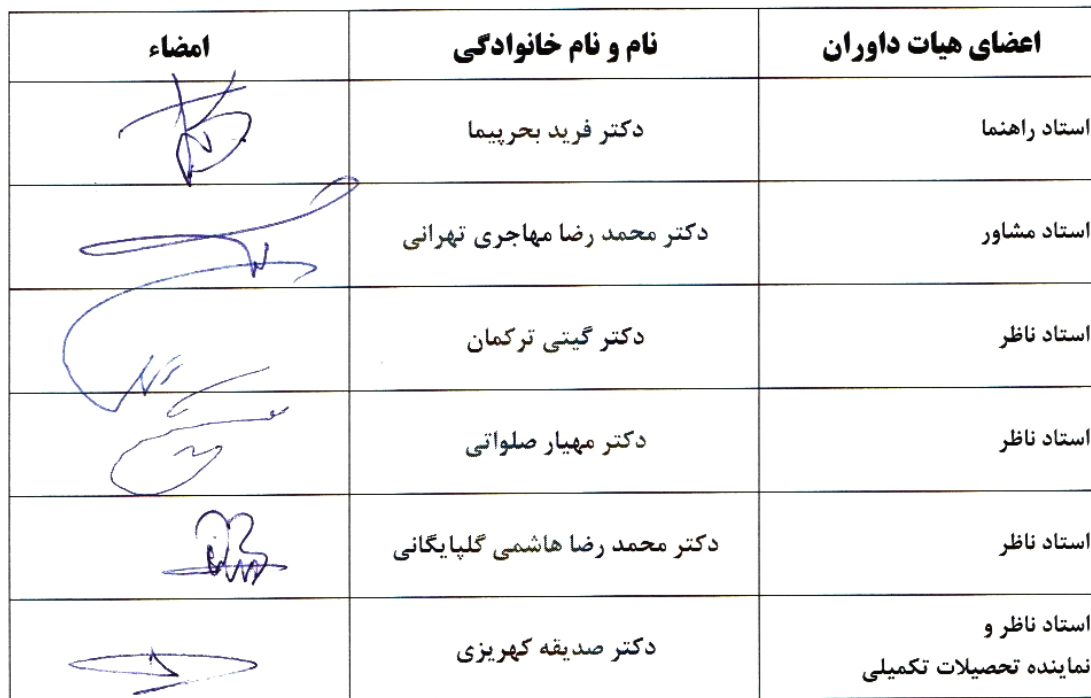 اعضای هیات داوران نام و نام خانوادگی امضاء
استاد راهنما دکتر فرید بحرپیما
استاد مشاور دکتر محمد رضا مهاجری تهرانی
استاد ناظر دکتر گیتی ترکمان
استاد ناظر دکتر مهیار صلواتی
استاد ناظر دکتر محمد رضا هاشمی گلپایگانی
استاد ناظر و
نماینده تحصیلات تکمیلی دکتر صدیقه کهریزی